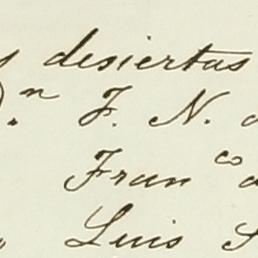 desiertas
Dn F. N.
Franco
Luis S